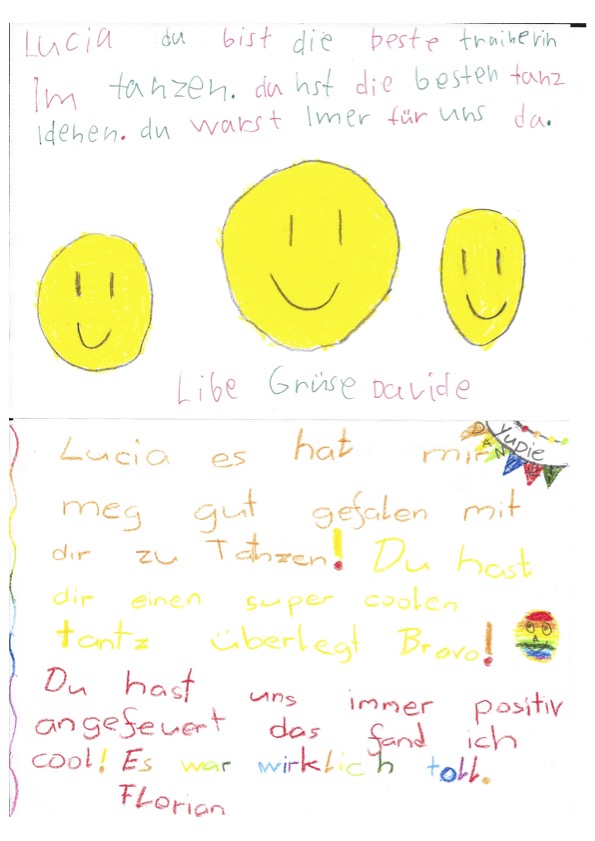 Lucia du bist die beste trainerin
Im tanzen. du hst die besten tanz
Idehen. du warst Imer für uns da.
Libe Grüse Davide
Yupie
DAN
Lucia es hat mir
meg gut gefalen mit
dir zu Tanzen! Du hast
dir einen super coolen
tantz überlegt Bravo!
Du hast uns immer positiv
angefeuert das fand ich
cool! Es war wirklich toll.
Florian